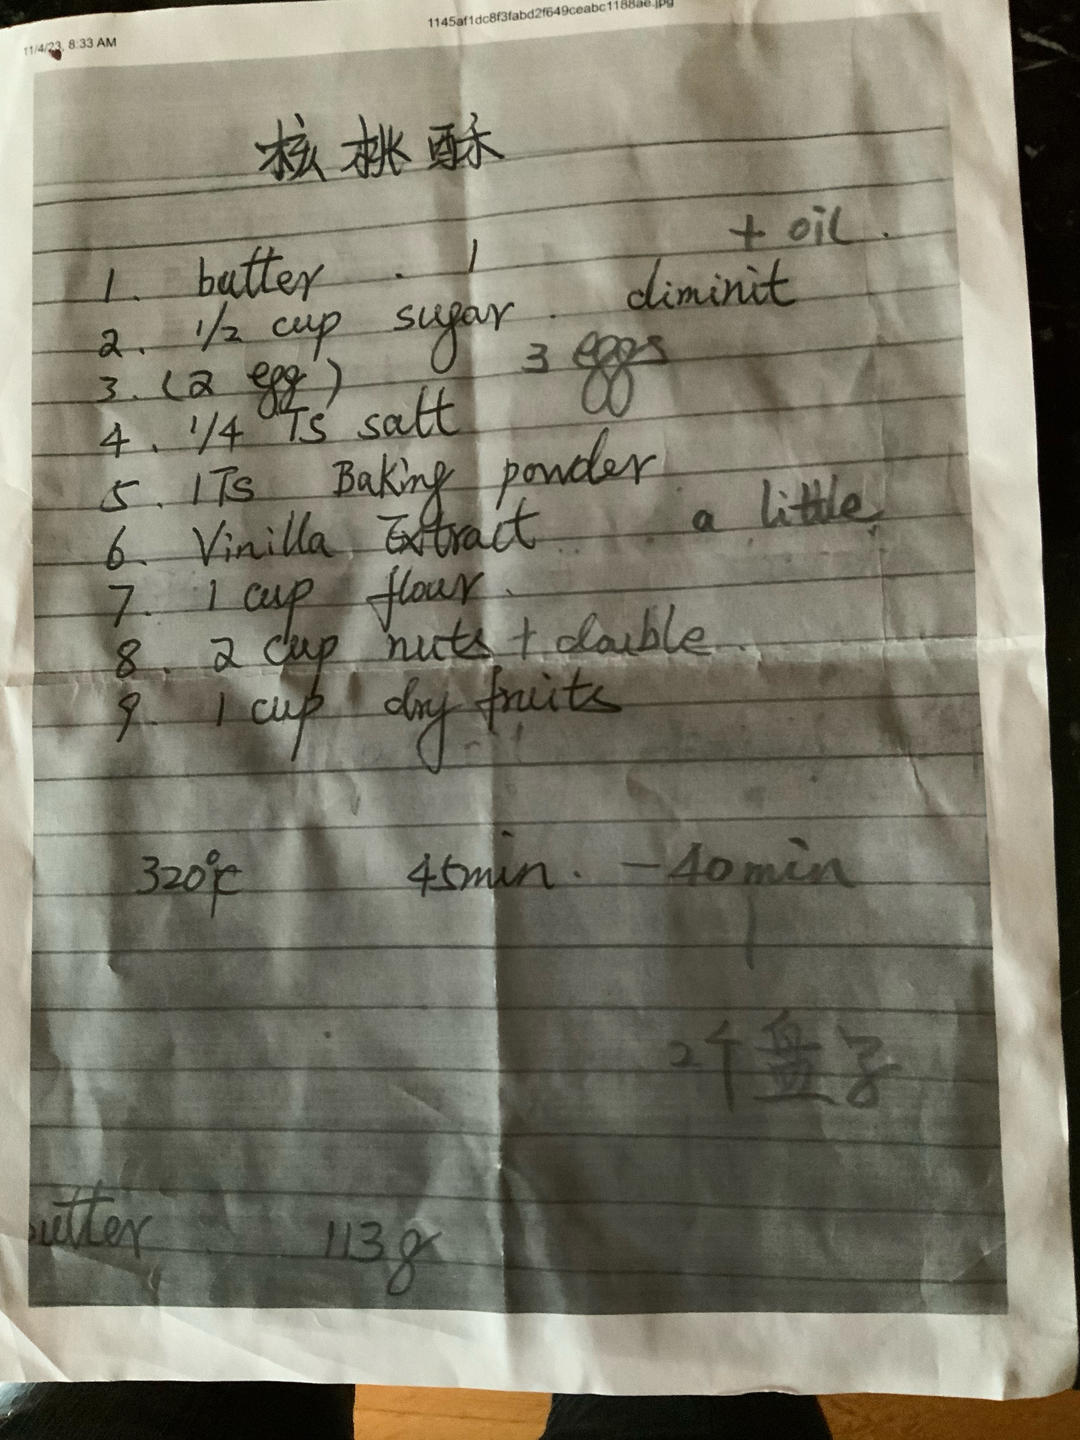 11/4/23, 8:33 AM
1145af1dc8f3fabd2f649ceabc1188ae.jpg
核桃酥
+ oil.
1. butter . 1
2. 1/2 cup sugar . diminit
3. (2 egg) 3 eggs
4. 1/4 Ts salt
5. 1 Ts Baking powder
6. Vinilla Extract a little
7. 1 cup flour.
8. 2 cup nuts + double.
9. 1 cup dry fruits
320°F 45min. - 40min
2个盘子
butter 113g